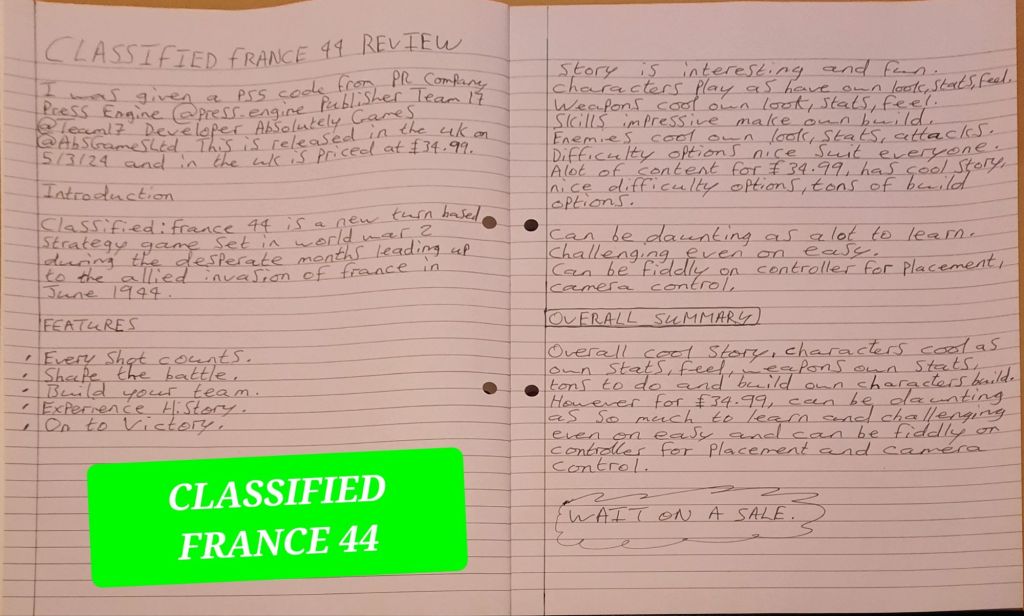 CLASSIFIED FRANCE 44 REVIEW
I was given a PS5 code from PR Company
Press Engine @press_engine Publisher Team 17
@Team17 Developer Absolutely Games
@AbsGamesLtd This is released in the uk on
5/3/24 and in the uk is priced at £34.99.
Introduction
Classified: France 44 is a new turn based
strategy game set in world war 2
during the desperate months leading up
to the allied invasion of france in
June 1944.
FEATURES
• Every Shot counts.
• Shape the battle.
• Build your team.
• Experience History.
• On to Victory.
CLASSIFIED
FRANCE 44
Story is interesting and fun.
Characters play as have own look, stats, feel.
Weapons cool own look, stats, feel.
Skills impressive make own build.
Enemies cool own look, stats, attacks.
Difficulty options nice suit everyone.
Alot of content for £34.99, has cool story,
nice difficulty options, tons of build
options.
Can be daunting as alot to learn.
Challenging even on easy.
Can be fiddly on controller for placement,
camera control.
OVERALL SUMMARY
Overall cool story, characters cool as
own stats, feel, weapons own stats,
tons to do and build own characters build.
However for £34.99, can be daunting
as so much to learn and challenging
even on easy and can be fiddly on
controller for placement and camera
control.
WAIT ON A SALE.